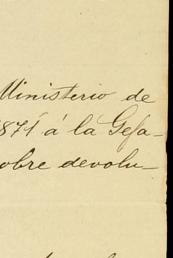 Ministerio de
1871 á la Gefa-
obre devolu-